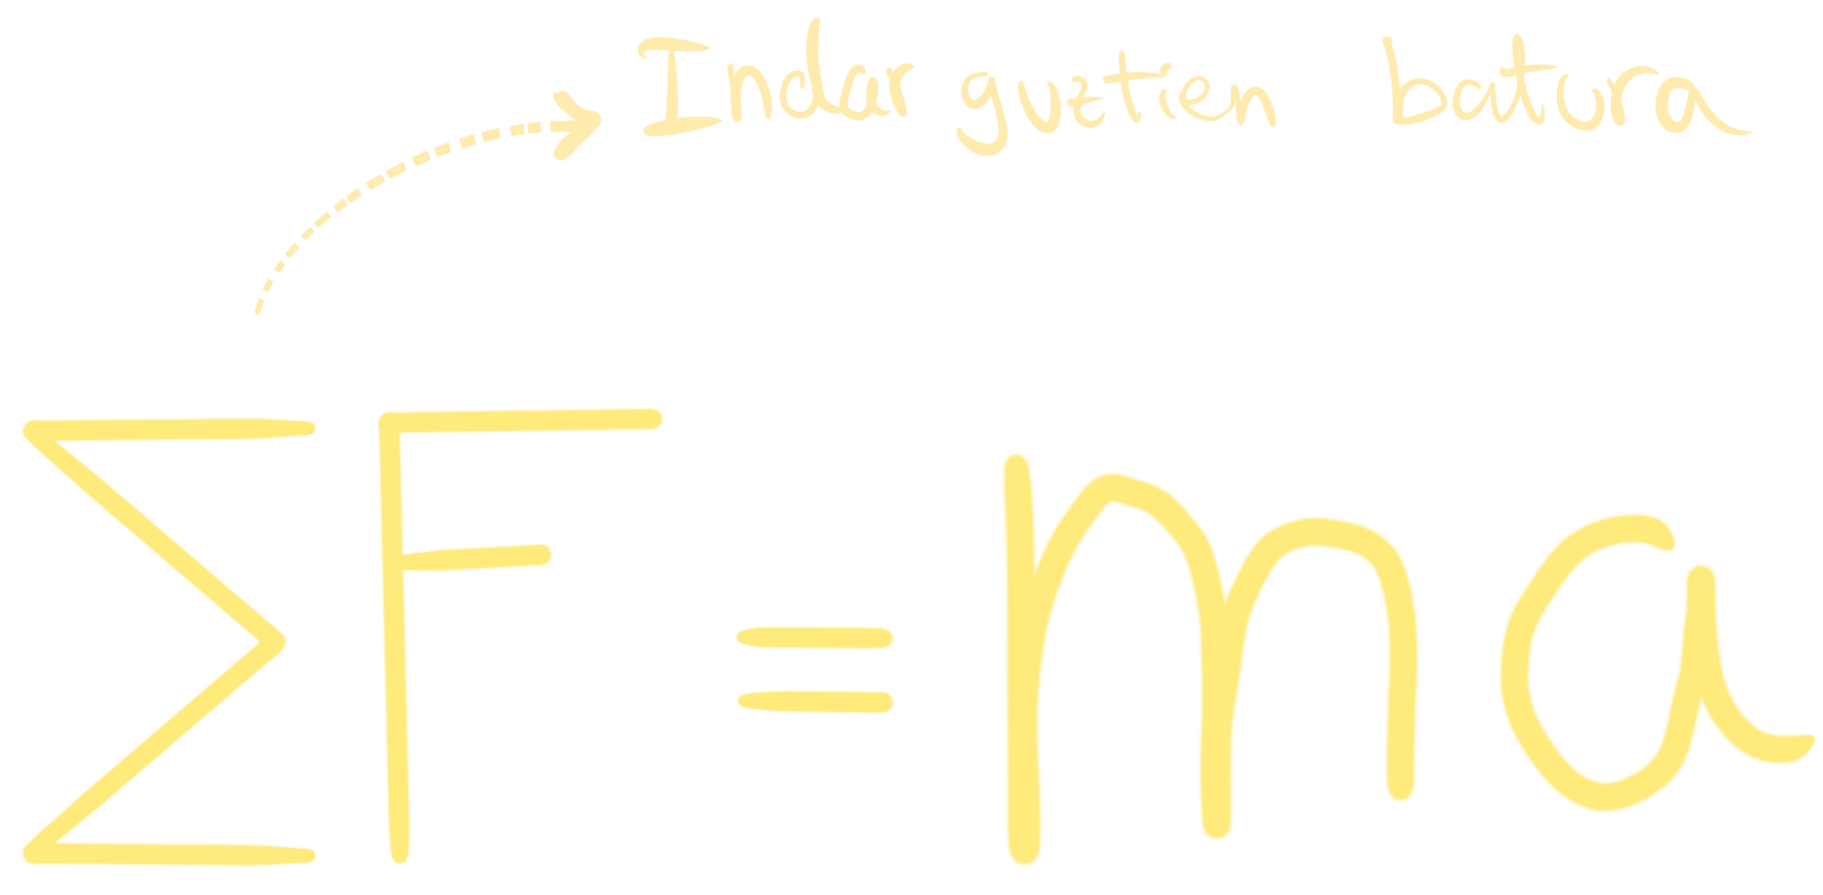 Indar guztien batura
ΣF = ma